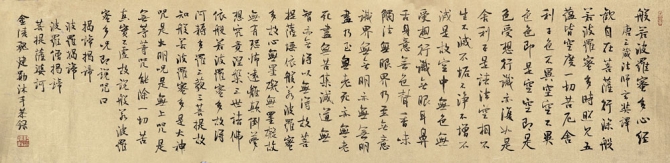 般若波羅蜜多心經
唐三藏法師玄奘譯
觀自在菩薩行深般
若波羅蜜多時照見五
蘊皆空度一切苦厄舍
利子色不異空空不異
色色即是空空即是
色受想行識亦復如是
舍利子是諸法空相不
生不滅不垢不淨不增不
減是故空中無色無
受想行識無眼耳鼻
舌身意無色聲香味
觸法無眼界乃至無意
識界無無明亦無無明
盡乃至無老死亦無老
死盡無苦集滅道無
智亦無得以無所得故菩
提薩埵依般若波羅蜜多
故心無罣礙無罣礙故
無有恐怖遠離顛倒夢
想究竟涅槃三世諸佛
依般若波羅蜜多故得
阿耨多羅三藐三菩提故
知般若波羅蜜多是大神
咒是大明咒是無上咒是
無等等咒能除一切苦
真實不虛故說般若波羅
蜜多咒即說咒曰
揭諦揭諦
波羅揭諦
波羅僧揭諦
菩提薩婆訶